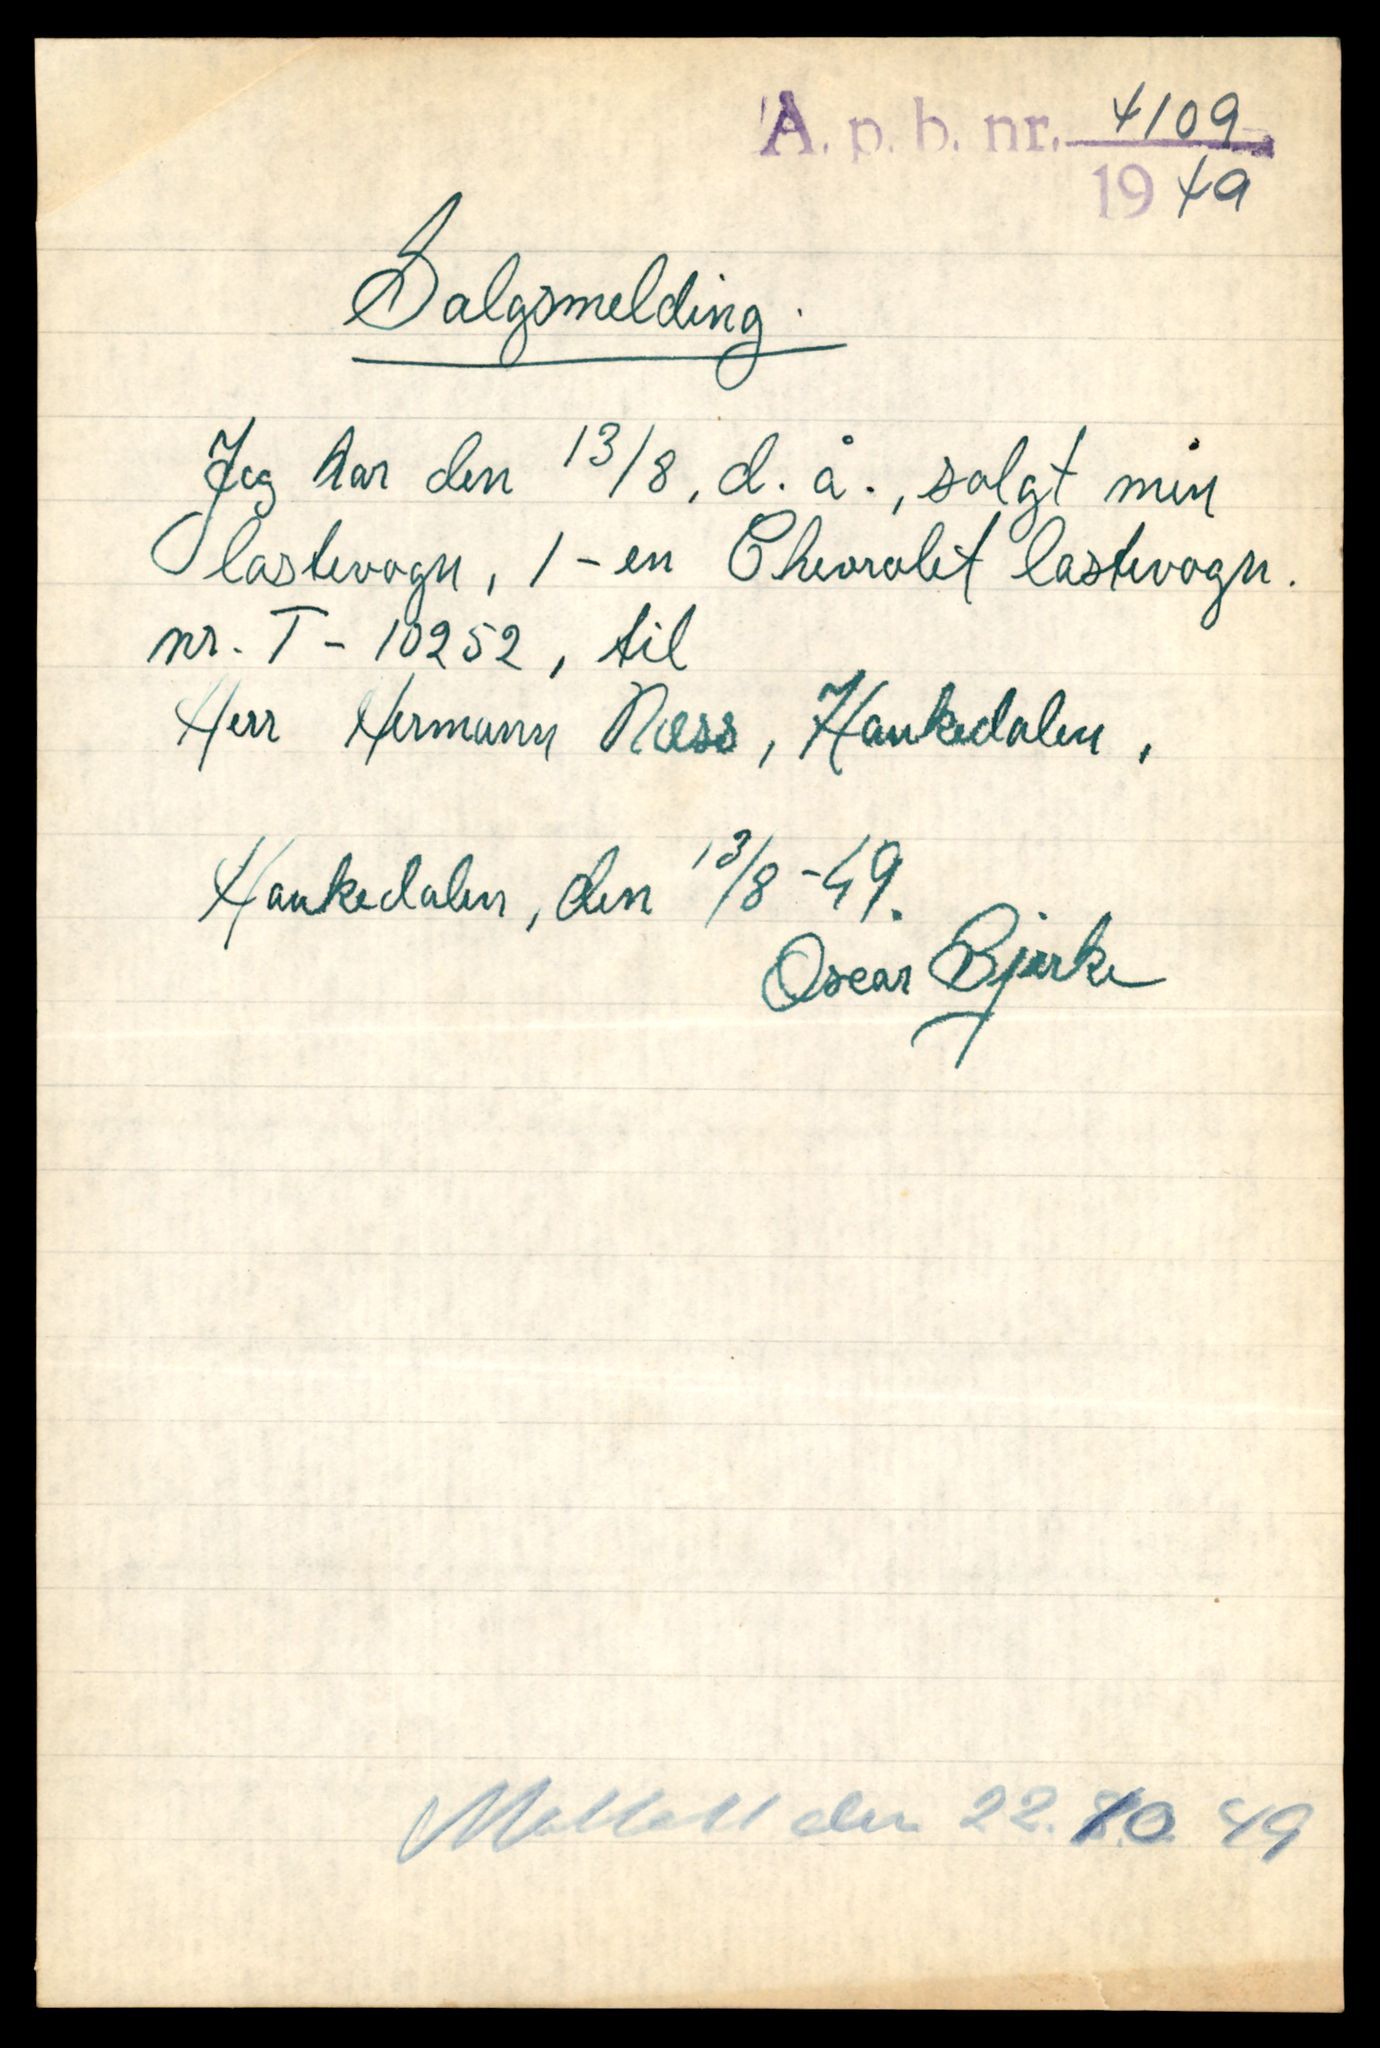 A. p. b. nr. 4109
1949
Salgsmelding.
Jeg har den 13/8, d. å., solgt min
lastevogn, 1-en Chevrolet lastevogn.
nr. T-10252, til
Herr Hermann Næss, Haukedalen,
Haukedalen, den 13/8-49.
Oscar Bjerke
den 22.10.49